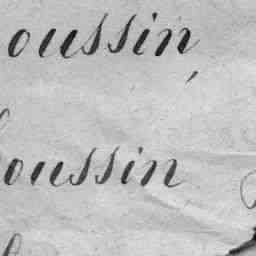 oussin,
oussin